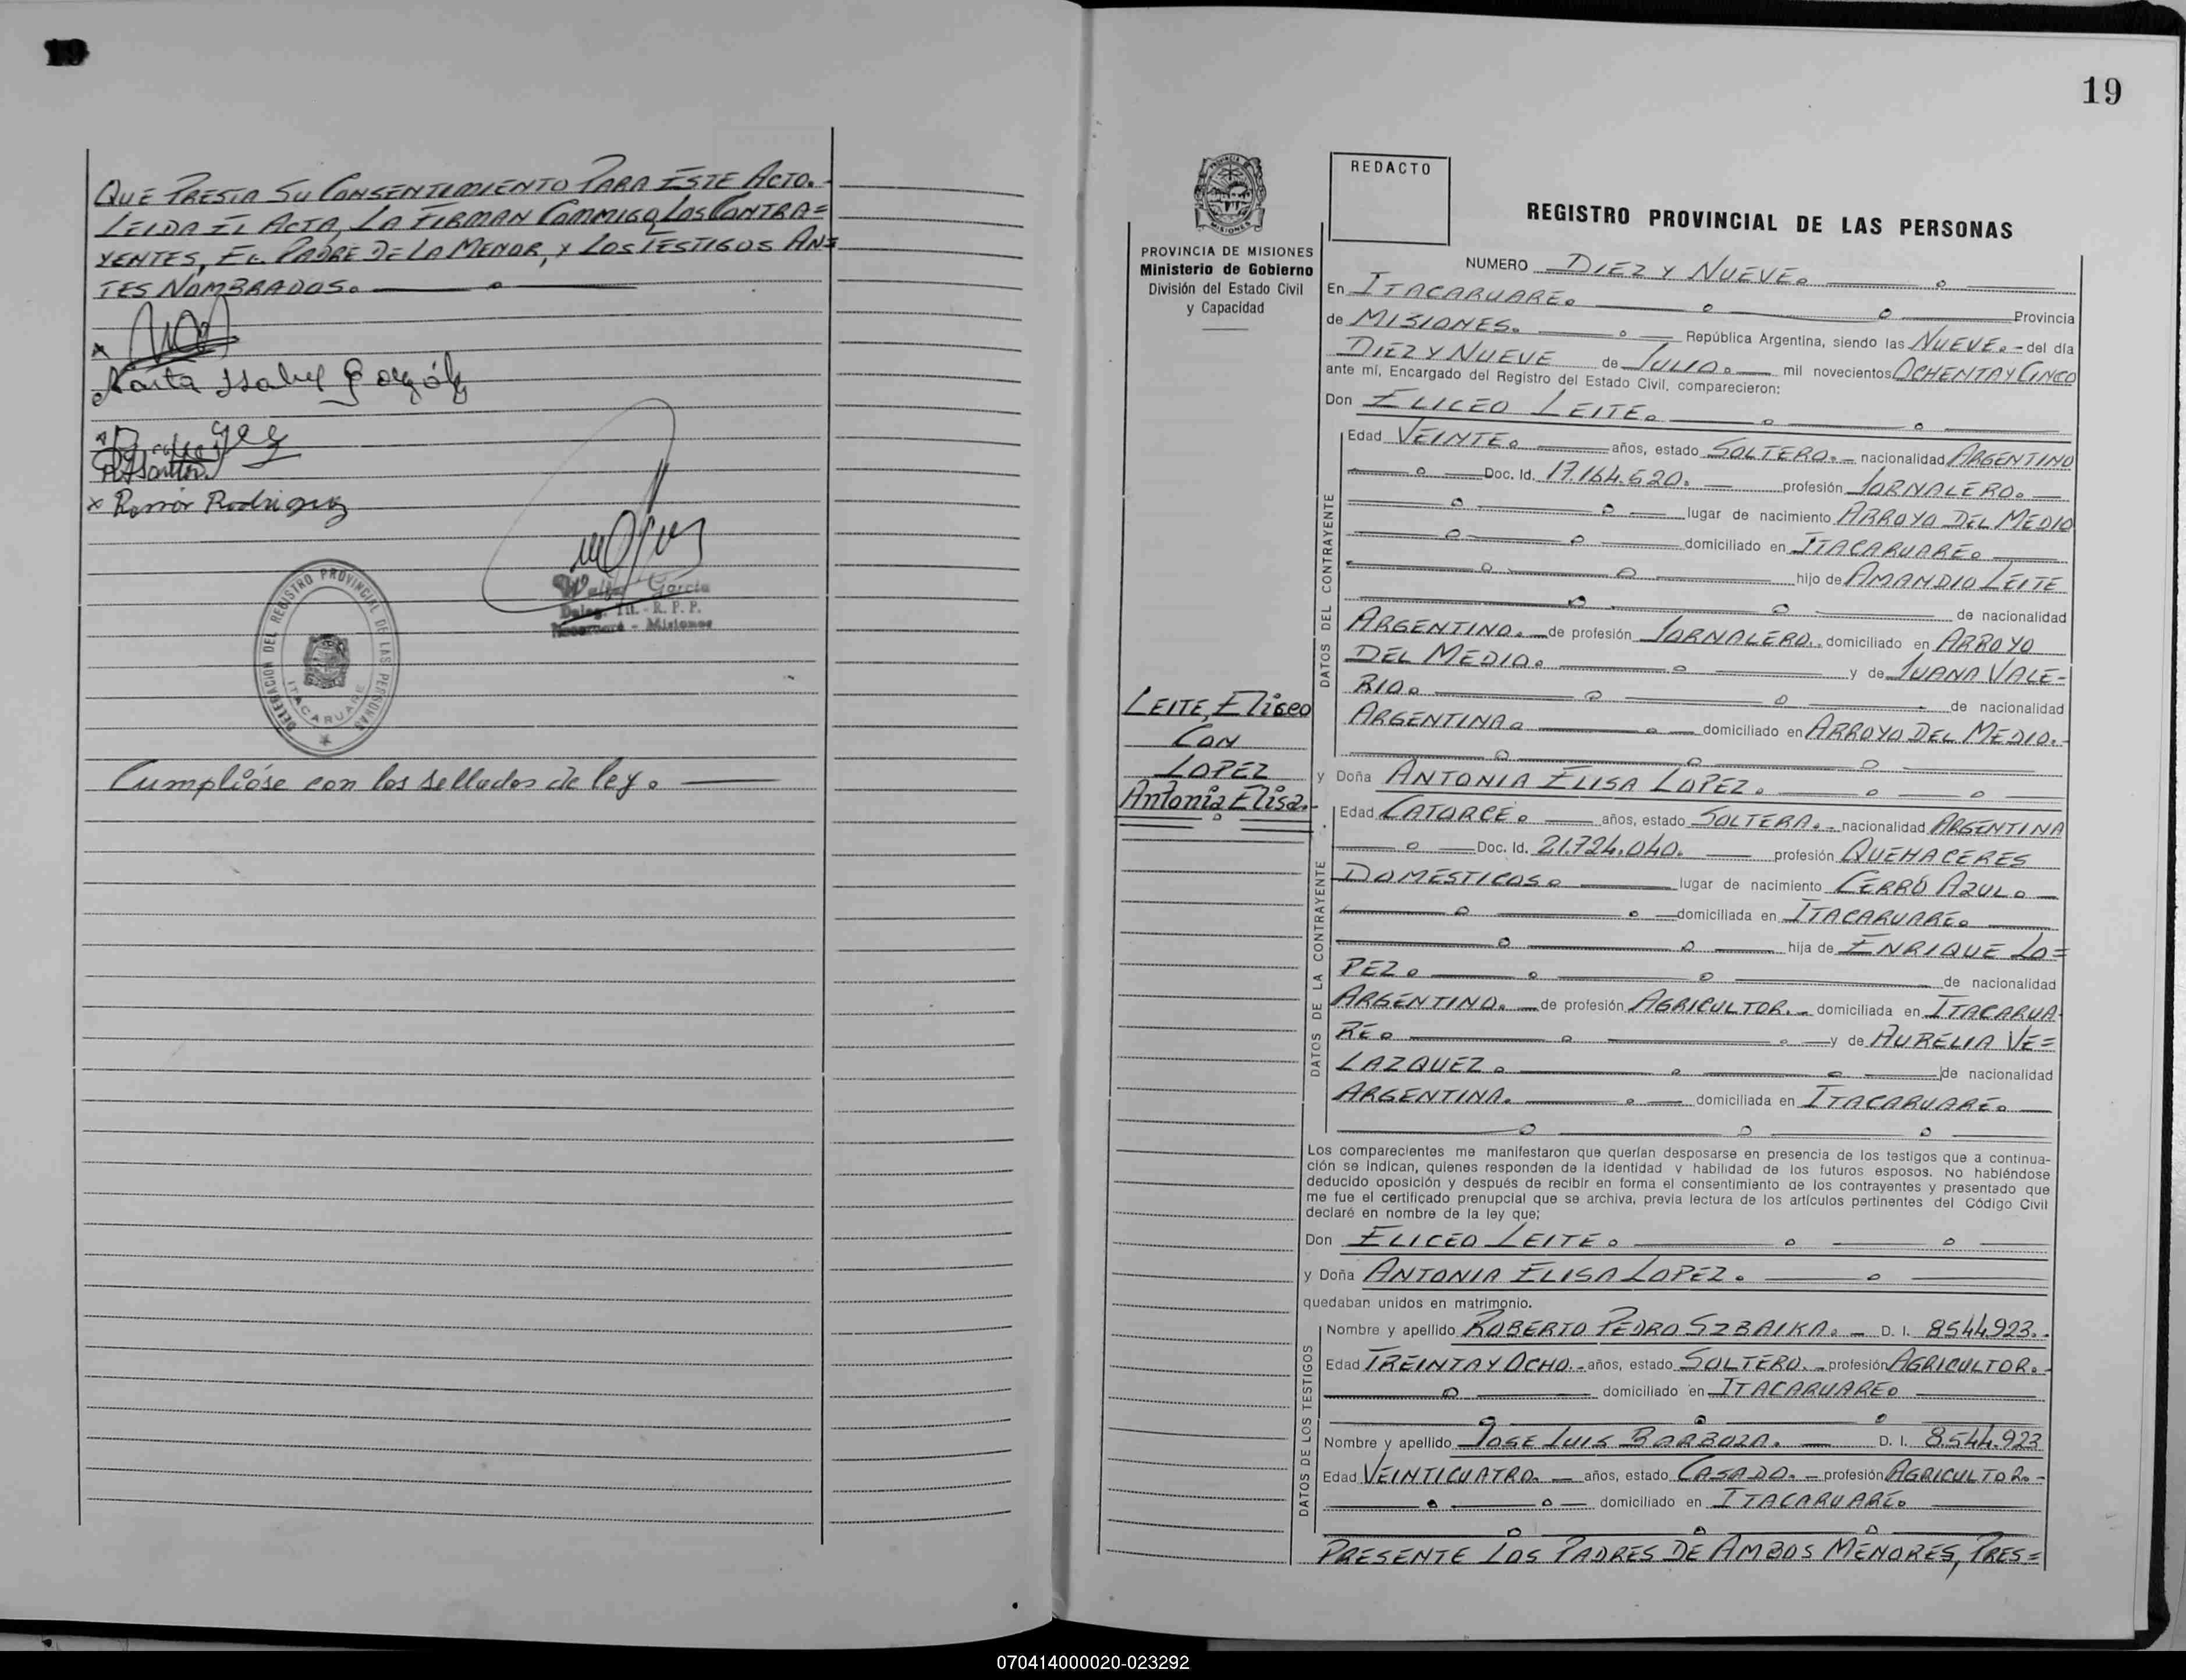 19
QUE PRESTA SU CONSENTIMIENTO PARA ESTE ACTO.-
LEIDA EL ACTA, LA FIRMAN CONMIGO, LOS CONTRA=
YENTES, EL PADRE DE LA MENOR, Y LOS TESTIGOS AN=
TES NOMBRADOS.
Isabel
x Ramón Rodriguez
García
Deleg. Tit. - R. P. P.
Itacaruaré - Misiones
DELEGACION DEL REGISTRO PROVINCIAL DE LAS PERSONAS
ITACARUARE
Cumplióse con los sellados de ley.
19
PROVINCIA DE MISIONES
Ministerio de Gobierno
División del Estado Civil
y Capacidad
LEITE, Eliseo
CON
LOPEZ
Antonia Elisa.-
REDACTO
REGISTRO PROVINCIAL DE LAS PERSONAS
NUMERO DIEZ Y NUEVE.
En ITACARUARE. Provincia
de MISIONES. República Argentina, siendo las NUEVE.- del día
DIEZ Y NUEVE de JULIO. mil novecientos OCHENTA Y CINCO
ante mí, Encargado del Registro del Estado Civil, comparecieron:
Don ELICEO LEITE.
DATOS DEL CONTRAYENTE
Edad VEINTE. años, estado SOLTERO.- nacionalidad ARGENTINO
Doc. Id. 17.164.620. profesión JORNALERO.
lugar de nacimiento ARROYO DEL MEDIO
domiciliado en ITACARUARE.
hijo de AMANDIO LEITE
de nacionalidad
ARGENTINO. de profesión JORNALERO. domiciliado en ARROYO
DEL MEDIO. y de JUANA VALE-
RIO. de nacionalidad
ARGENTINA. domiciliado en ARROYO DEL MEDIO.-
y Doña ANTONIA ELISA LOPEZ.
DATOS DE LA CONTRAYENTE
Edad CATORCE. años, estado SOLTERA.- nacionalidad ARGENTINA
Doc. Id. 21.724.040. profesión QUEHACERES
DOMESTICOS. lugar de nacimiento CERRO AZUL.
domiciliada en ITACARUARE.
hija de ENRIQUE LO=
PEZ. de nacionalidad
ARGENTINO. de profesión AGRICULTOR.- domiciliada en ITACARUA
RE. y de AURELIA VE=
LAZQUEZ. de nacionalidad
ARGENTINA. domiciliada en ITACARUARE.
Los comparecientes me manifestaron que querían desposarse en presencia de los testigos que a continua-
ción se indican, quienes responden de la identidad y habilidad de los futuros esposos. No habiéndose
deducido oposición y después de recibir en forma el consentimiento de los contrayentes y presentado que
me fue el certificado prenupcial que se archiva, previa lectura de los artículos pertinentes del Código Civil
declaré en nombre de la ley que;
Don ELICEO LEITE.
y Doña ANTONIA ELISA LOPEZ.
quedaban unidos en matrimonio.
DATOS DE LOS TESTIGOS
Nombre y apellido ROBERTO PEDRO SZBAIKA.- D. I. 8544.923.-
Edad TREINTA Y OCHO.- años, estado SOLTERO.- profesión AGRICULTOR.-
domiciliado en ITACARUARE.
Nombre y apellido JOSE LUIS BARBOZA. D. I. 8.544.923
Edad VEINTICUATRO. años, estado CASADO.- profesión AGRICULTOR.-
domiciliado en ITACARUARE.
PRESENTE LOS PADRES DE AMBOS MENORES, PRES=
070414000020-023292